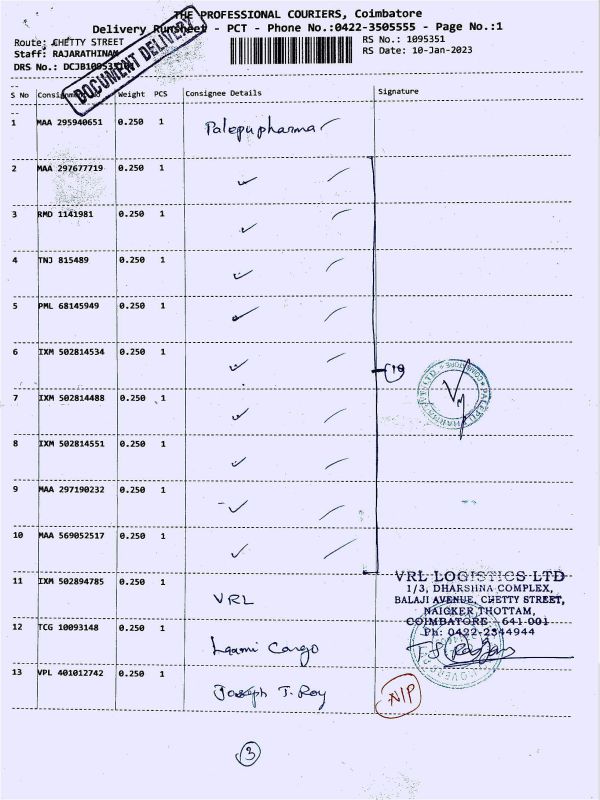 THE PROFESSIONAL COURIERS, Coimbatore
Delivery Runsheet - PCT - Phone No.:0422-3505555 - Page No.:1
Route: CHETTY STREET
Staff: RAJARATHINAM
DRS No.:
RS No.: 1095351
RS Date: 10-Jan-2023
DOCUMENT DELIVERY
S No Consignment No Weight PCS Consignee Details Signature
1 MAA 295940651 0.250 1 Palepupharma
2 MAA 297677719 0.250 1
3 RMD 1141981 0.250 1
4 TNJ 815489 0.250 1
5 PML 68145949 0.250 1
6 IXM 502814534 0.250 1
7 IXM 502814488 0.250 1
8 IXM 502814551 0.250 1
9 MAA 297190232 0.250 1
10 MAA 569052517 0.250 1
11 IXM 502894785 0.250 1 VRL
12 TCG 10093148 0.250 1 Cargo
13 VPL 401012742 0.250 1 Joseph T. Roy
VRL LOGISTICS LTD
1/3, DHARSHNA COMPLEX,
BALAJI AVENUE, CHETTY STREET,
NAICKER THOTTAM,
COIMBATORE - 641 001
Ph: 0422-2344944
N/P
3